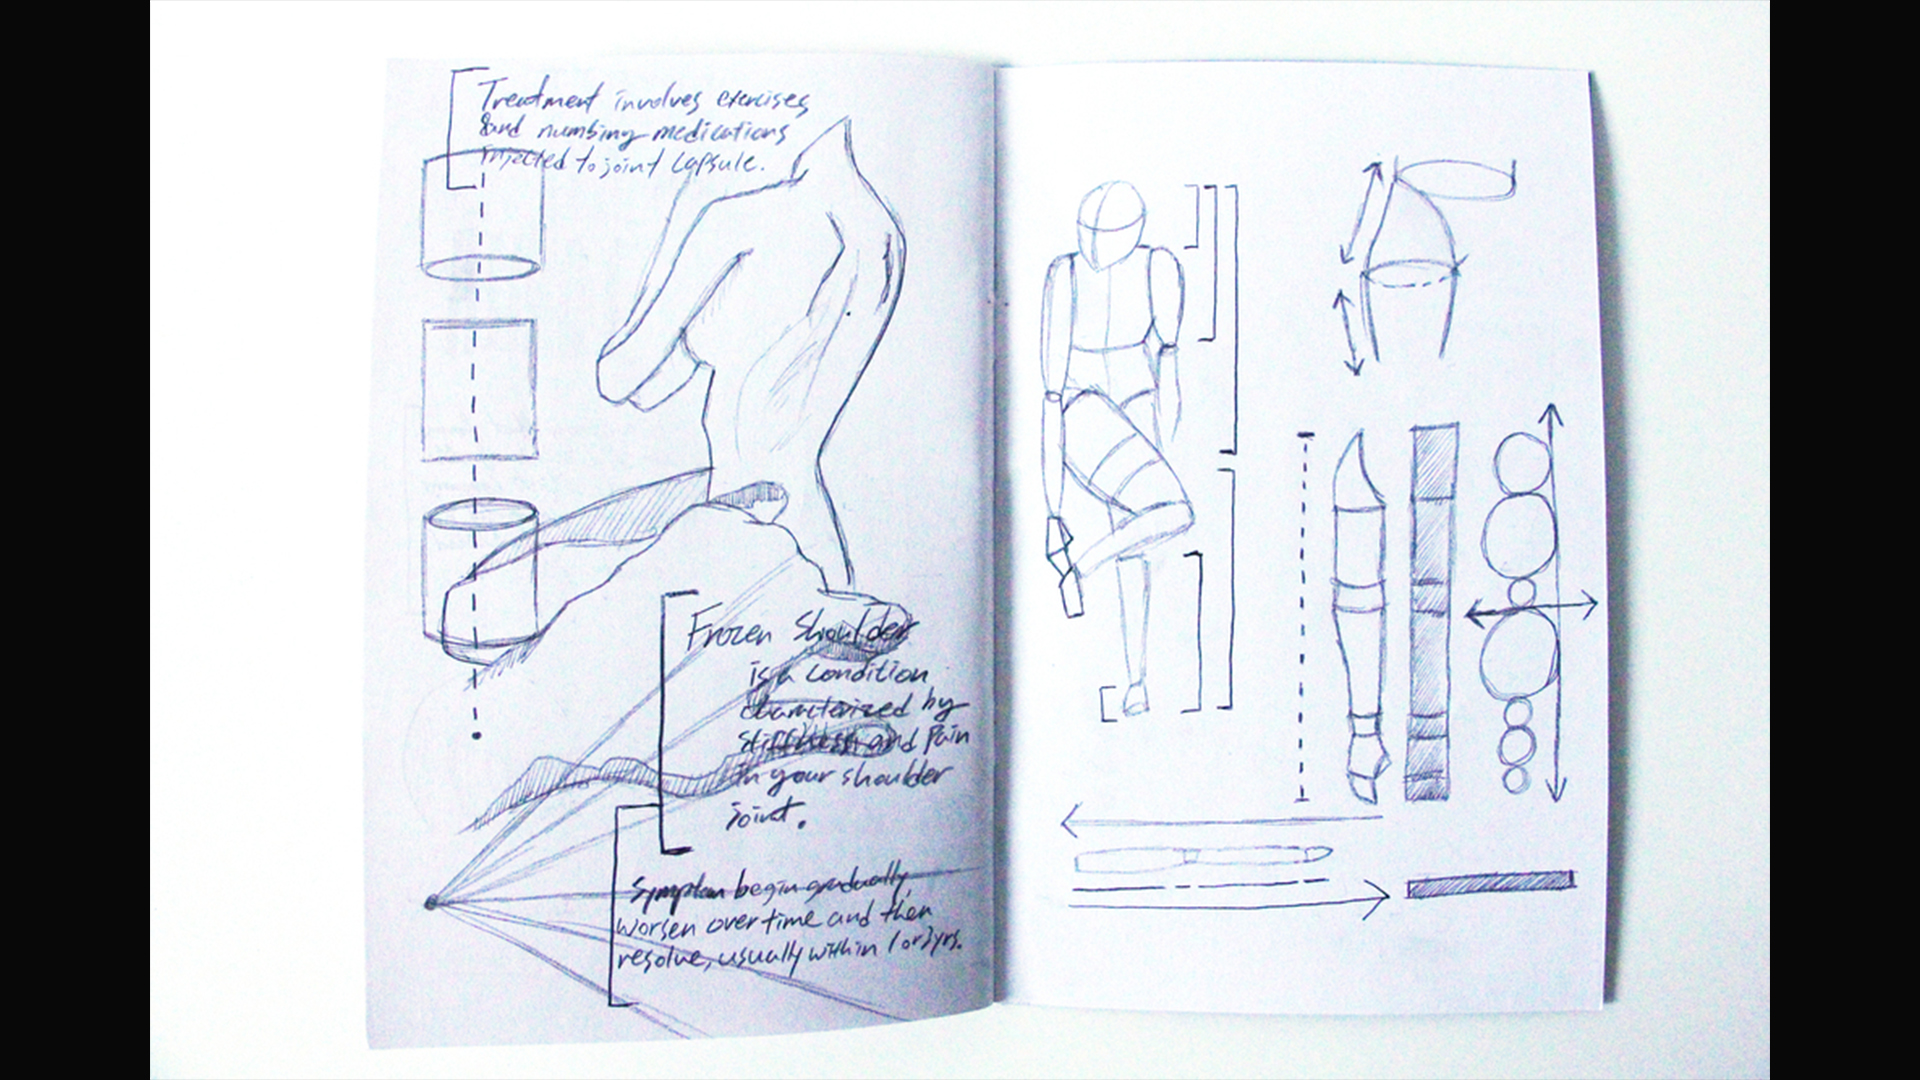 Treatment involves exercises
and numbing medications
injected to joint capsule.
Frozen Shoulder
is a condition
characterized by
stiffness and Pain
in your shoulder
joint.
begin gradually,
worsen over time and then
resolve, usually within 1 or 3yrs.